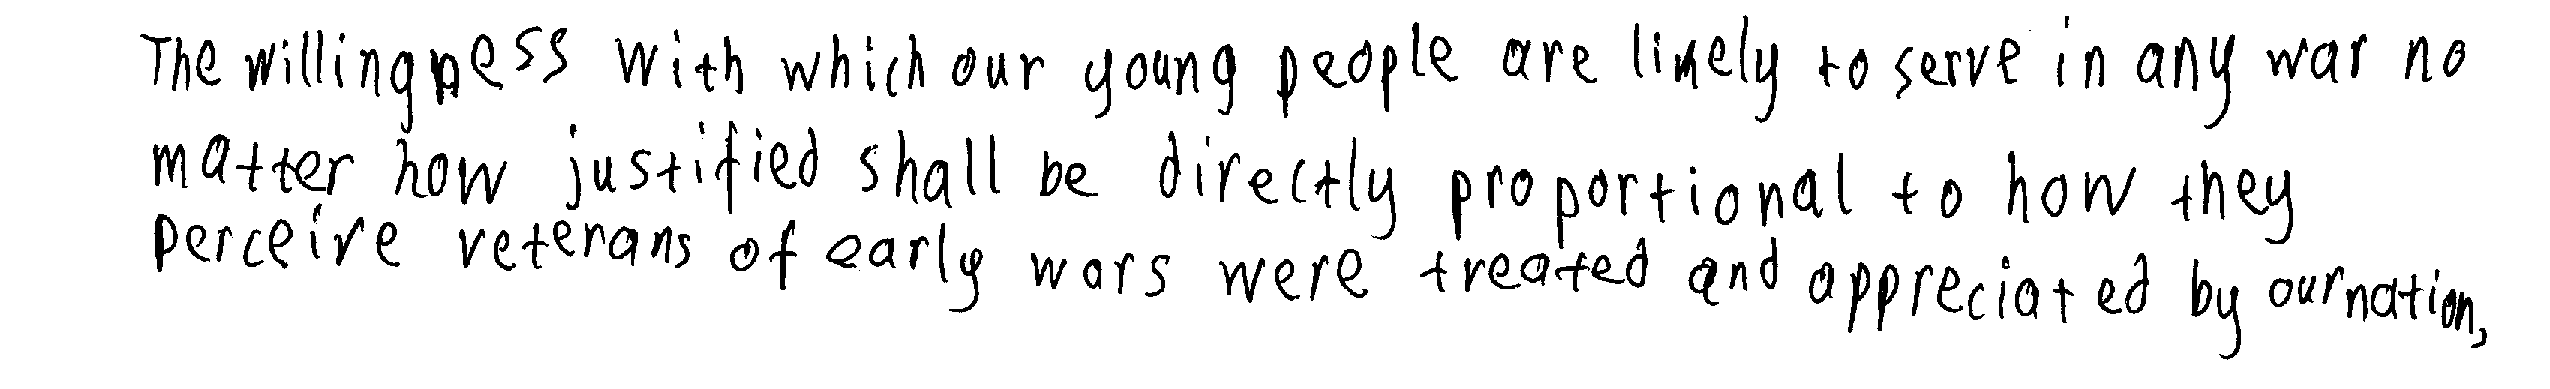 The willingness with which our young people are likely to serve in any war no
matter how justified shall be directly proportional to how they
perceive veterans of early wars were treated and appreciated by our nation,